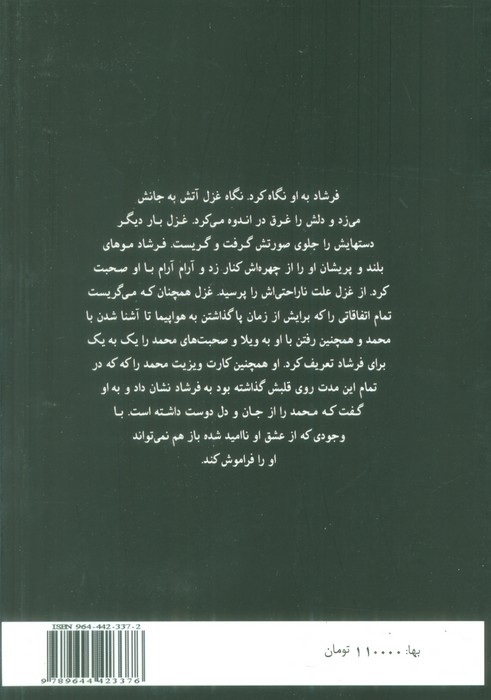 فرشاد به او نگاه کرد. نگاه غزل آتش به جانش
می‌زد و دلش را غرق در اندوه می‌کرد. غزل بار دیگر
دستهایش را جلوی صورتش گرفت و گریست. فرشاد موهای
بلند و پریشان او را از چهره‌اش کنار زد و آرام آرام با او صحبت
کرد. از غزل علت ناراحتی‌اش را پرسید. غزل همچنان که می‌گریست
تمام اتفاقاتی را که برایش از زمان پاگذاشتن به هواپیما تا آشنا شدن با
محمد و همچنین رفتن با او به ویلا و صحبت‌های محمد را یک به یک
برای فرشاد تعریف کرد. او همچنین کارت ویزیت محمد را که که در
تمام این مدت روی قلبش گذاشته بود به فرشاد نشان داد و به او
گفت که محمد را از جان و دل دوست داشته است. با
وجودی که از عشق او ناامید شده باز هم نمی‌تواند
او را فراموش کند.
ISBN 964-442-337-2
9 789644 423376
بها: ۱۱۰۰۰۰ تومان